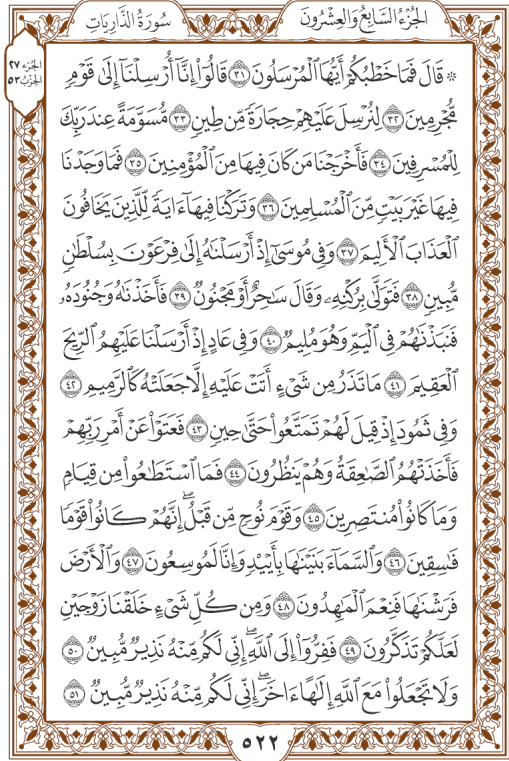 الجُزْءُ السَّابِعُ وَالعِشْرُونَ
سُورَةُ الذَّارِيَاتِ
الجزء ٢٧
الحزب ٥٣
۞ قَالَ فَمَا خَطْبُكُمْ أَيُّهَا ٱلْمُرْسَلُونَ ٣١ قَالُوٓاْ إِنَّآ أُرْسِلْنَآ إِلَىٰ قَوْمٖ
مُّجْرِمِينَ ٣٢ لِنُرْسِلَ عَلَيْهِمْ حِجَارَةٗ مِّن طِينٖ ٣٣ مُّسَوَّمَةً عِندَ رَبِّكَ
لِلْمُسْرِفِينَ ٣٤ فَأَخْرَجْنَا مَن كَانَ فِيهَا مِنَ ٱلْمُؤْمِنِينَ ٣٥ فَمَا وَجَدْنَا
فِيهَا غَيْرَ بَيْتٖ مِّنَ ٱلْمُسْلِمِينَ ٣٦ وَتَرَكْنَا فِيهَآ ءَايَةٗ لِّلَّذِينَ يَخَافُونَ
ٱلْعَذَابَ ٱلْأَلِيمَ ٣٧ وَفِي مُوسَىٰٓ إِذْ أَرْسَلْنَٰهُ إِلَىٰ فِرْعَوْنَ بِسُلْطَٰنٖ
مُّبِينٖ ٣٨ فَتَوَلَّىٰ بِرُكْنِهِۦ وَقَالَ سَٰحِرٌ أَوْ مَجْنُونٞ ٣٩ فَأَخَذْنَٰهُ وَجُنُودَهُۥ
فَنَبَذْنَٰهُمْ فِي ٱلْيَمِّ وَهُوَ مُلِيمٞ ٤٠ وَفِي عَادٍ إِذْ أَرْسَلْنَا عَلَيْهِمُ ٱلرِّيحَ
ٱلْعَقِيمَ ٤١ مَا تَذَرُ مِن شَيْءٍ أَتَتْ عَلَيْهِ إِلَّا جَعَلَتْهُ كَٱلرَّمِيمِ ٤٢
وَفِي ثَمُودَ إِذْ قِيلَ لَهُمْ تَمَتَّعُواْ حَتَّىٰ حِينٖ ٤٣ فَعَتَوْاْ عَنْ أَمْرِ رَبِّهِمْ
فَأَخَذَتْهُمُ ٱلصَّٰعِقَةُ وَهُمْ يَنظُرُونَ ٤٤ فَمَا ٱسْتَطَٰعُواْ مِن قِيَامٖ
وَمَا كَانُواْ مُنتَصِرِينَ ٤٥ وَقَوْمَ نُوحٖ مِّن قَبْلُۖ إِنَّهُمْ كَانُواْ قَوْمٗا
فَٰسِقِينَ ٤٦ وَٱلسَّمَآءَ بَنَيْنَٰهَا بِأَيْيْدٖ وَإِنَّا لَمُوسِعُونَ ٤٧ وَٱلْأَرْضَ
فَرَشْنَٰهَا فَنِعْمَ ٱلْمَٰهِدُونَ ٤٨ وَمِن كُلِّ شَيْءٍ خَلَقْنَا زَوْجَيْنِ
لَعَلَّكُمْ تَذَكَّرُونَ ٤٩ فَفِرُّوٓاْ إِلَى ٱللَّهِۖ إِنِّي لَكُم مِّنْهُ نَذِيرٞ مُّبِينٞ ٥٠
وَلَا تَجْعَلُواْ مَعَ ٱللَّهِ إِلَٰهًا ءَاخَرَۖ إِنِّي لَكُم مِّنْهُ نَذِيرٞ مُّبِينٞ ٥١
٥٢٢